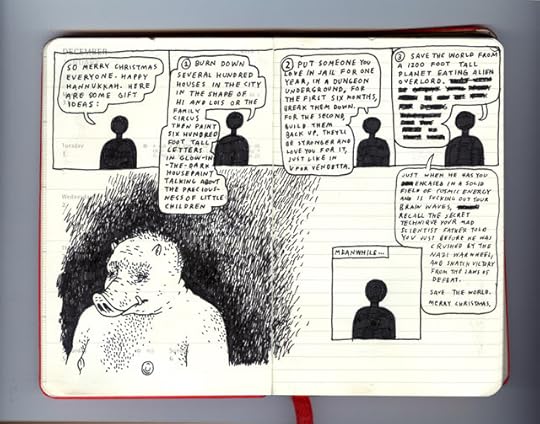 DECEMBER
SO MERRY CHRISTMAS
EVERYONE. HAPPY
HANNUKKAH. HERE
ARE SOME GIFT
IDEAS:
① BURN DOWN
SEVERAL HUNDRED
HOUSES IN THE CITY
IN THE SHAPE OF
HI AND LOIS OR THE
FAMILY
CIRCUS
THEN PAINT
SIX HUNDRED
FOOT TALL
LETTERS
IN GLOW-IN
-THE-DARK
HOUSEPAINT
TALKING ABOUT
THE PRECIOUS-
NESS OF LITTLE
CHILDREN
② PUT SOMEONE YOU
LOVE IN JAIL FOR ONE
YEAR, IN A DUNGEON
UNDERGROUND, FOR
THE FIRST SIX MONTHS,
BREAK THEM DOWN.
FOR THE SECOND,
BUILD THEM
BACK UP. THEY'LL
BE STRONGER AND
LOVE YOU FOR IT,
JUST LIKE IN
V FOR VENDETTA.
③ SAVE THE WORLD FROM
A 1200 FOOT TALL
PLANET EATING ALIEN
OVERLORD.
JUST WHEN HE HAS YOU
ENCASED IN A SOLID
FIELD OF COSMIC ENERGY
AND IS SUCKING OUT YOUR
BRAIN WAVES,
RECALL THE SECRET
TECHNIQUE YOUR MAD
SCIENTIST FATHER TOLD
YOU JUST BEFORE HE WAS
CRUSHED BY THE
NAZI WAR WHEELS,
AND SNATCH VICTORY
FROM THE JAWS OF
DEFEAT.
SAVE THE WORLD.
MERRY CHRISTMAS.
Tuesday
Wedne
MEANWHILE...